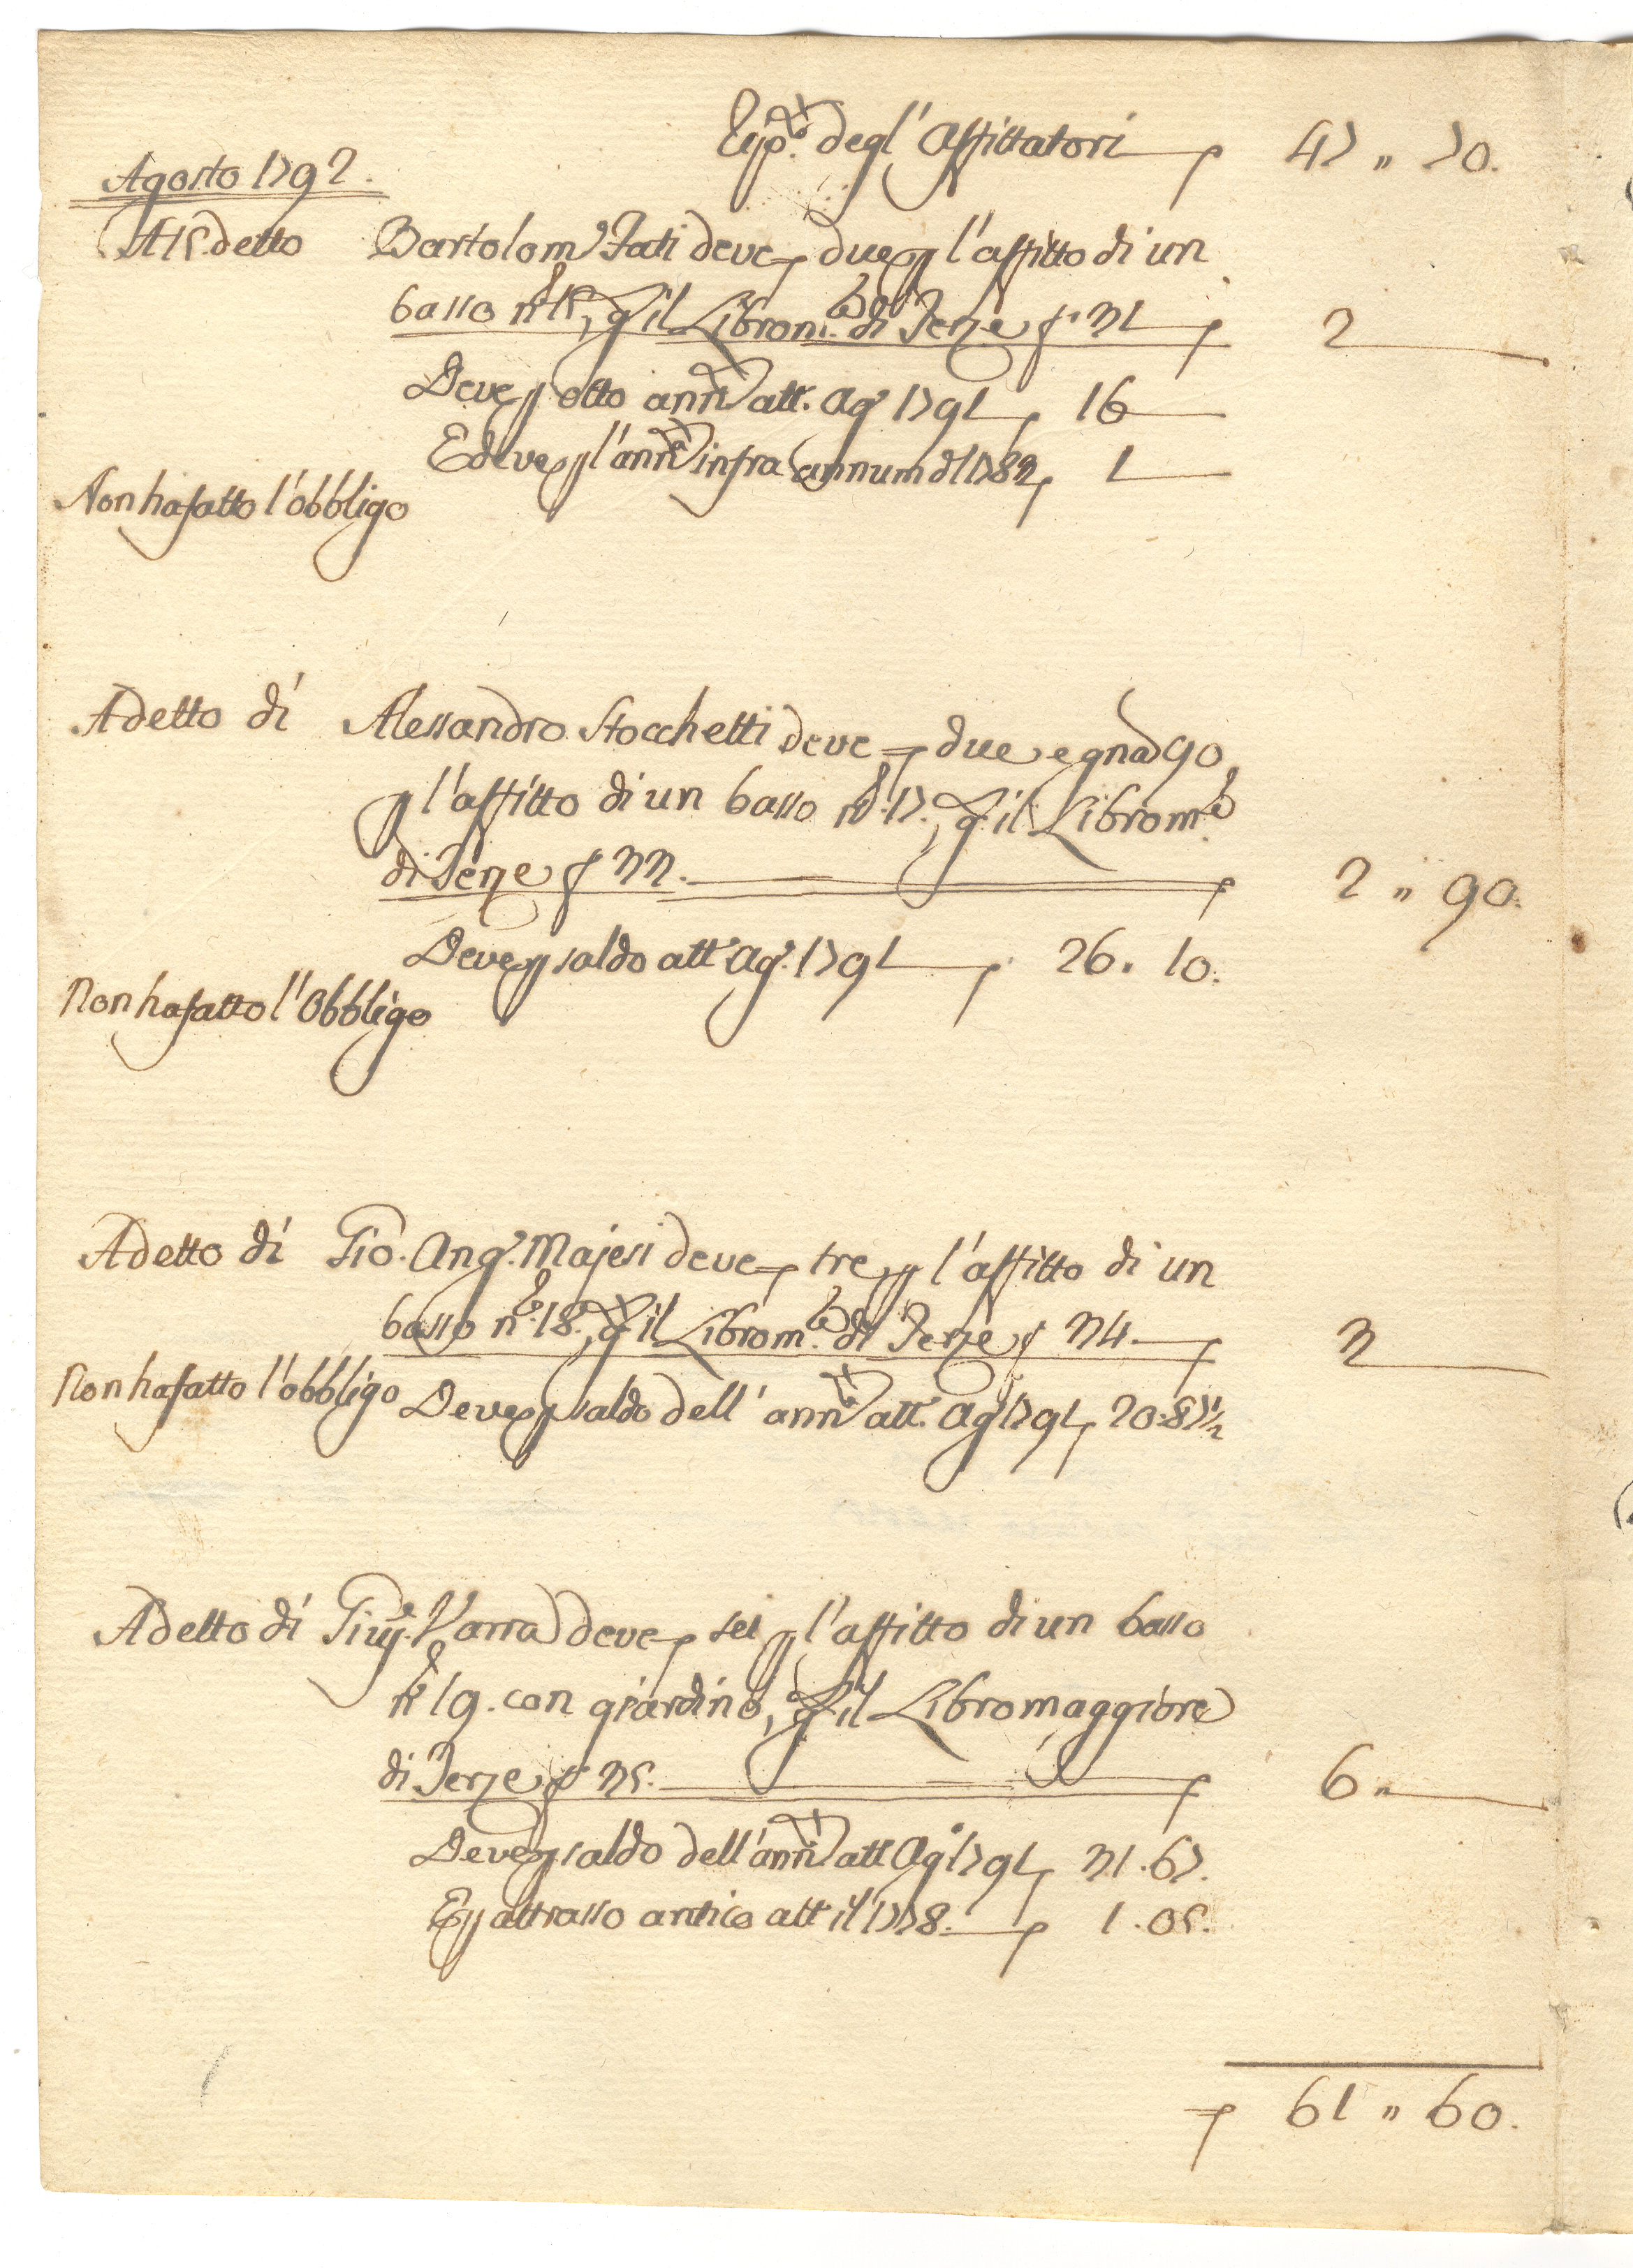 Esp.te degl' Affittatori 47 " 70.
Agosto 1792.
A 15. detto Bartolom.o Fati deve due p l'affitto di un
basso n.º 15, q.e il Librom.re di Terze f. 31 2
Deve p otto ann.te att. Ag.o 1791 16
E deve p l'ann.ta infra annum d'l 1783 1
Non ha fatto l'obbligo
A detto di Alessandro Stocchetti deve due e gna 90
p l'affitto di un basso n.º 17., q.e il Librom.re
di Terze f. 33. 2 " 90.
Deve p saldo att. Ag.o 1791 26. 10.
Non ha fatto l'Obbligo
A detto di Gio. Ang.o Majesi deve tre p l'affitto di un
basso n.º 18., q.e il Librom.re di Terze f. 34. 3
Non ha fatto l'obbligo Deve p saldo dell' ann.te att. Ag.o 1791 20:87 1/2
A detto di Gius.e Varra deve sei p l'affitto di un basso
n.º 19. con giardino, q.e il Libro maggiore
di Terze f. 35. 6 "
Deve p saldo dell' ann.te att. Ag.o 1791 31. 67.
E p attrasso antico att. il 1778. 1. 05.
61 " 60.